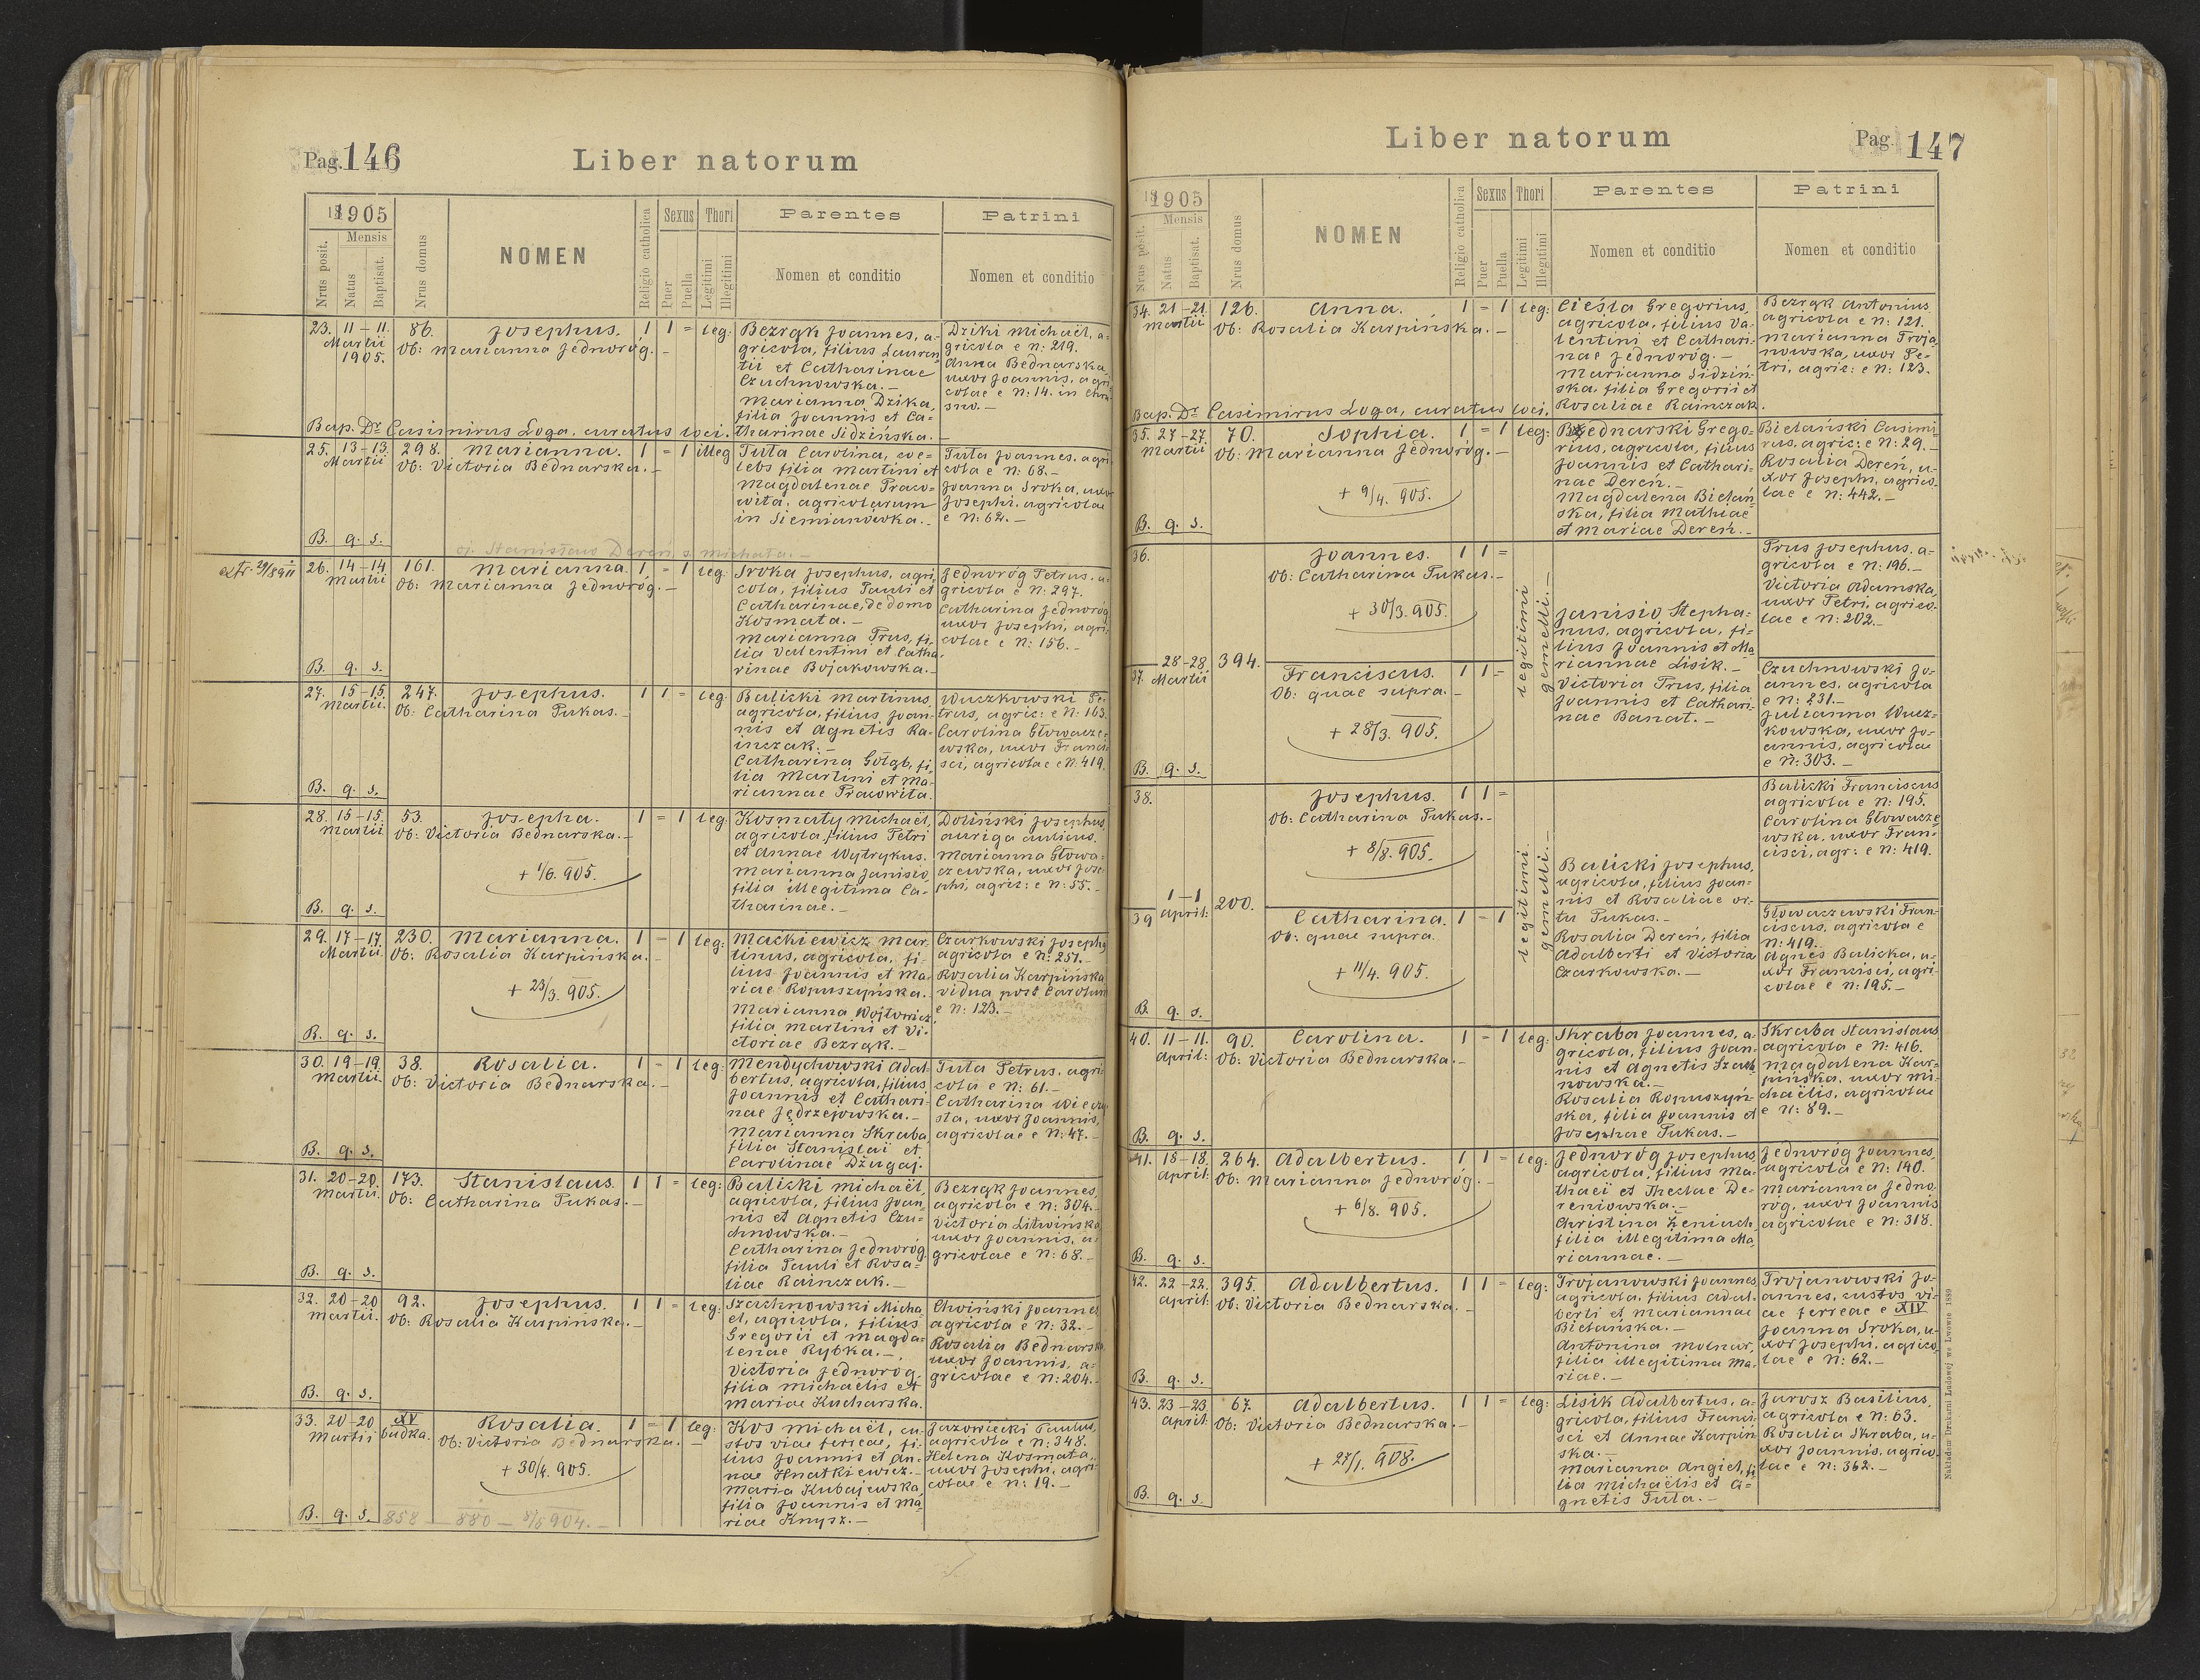 Pag. 146
Liber natorum
1905
Nrus posit.
Mensis
Natus
Baptisat.
Nrus domus
NOMEN
Religio catholica
Sexus
Puer
Puella
Thori
Legitimi
Illegitimi
Parentes
Nomen et conditio
Patrini
Nomen et conditio
23. 11–11. Martii 1905.
86.
Josephus.
1 1 = leg:
Ob: Marianna Jednoróg.–
Bezrąk Joannes, a=
gricola, filius Lauren
tii et Catharinae
Czuchnowska.–
Marianna Dzika,
filia Joannis et Ca=
tharinae Sidzińska.–
Dziki Michaël, a=
gricola e n: 219.
Anna Bednarska,
uxor Joannis, agri=
colae e n: 14. in Chra
sno.–
Bap. Dr Casimirus Loga, curatus loci.
25. 13–13. Martii
298.
Marianna.
1 = 1 illeg
Ob: Victoria Bednarska.–
Tuta Carolina, coe=
lebs filia Martini et
Magdalenae Praco=
wita, agricolarum
in Siemianówka.–
Tuta Joannes, agri
cola e n: 68.–
Joanna Sroka, uxor
Josephi, agricolae
e n: 62.–
B. q. s.
oj. Stanisław Dereń, s. Michała.–
26. 14–14. Martii
161.
Marianna.
1 = 1 leg:
Ob: Marianna Jednoróg.–
Sroka Josephus, agri
cola, filius Pauli et
Catharinae, de domo
Kosmata.–
Marianna Prus, fi=
lia Valentini et Catha
rinae Bojakowska.–
Jednoróg Petrus, a=
gricola e n: 297.
Catharina Jednoróg
uxor Josephi, agri=
colae e n: 156.–
B. q. s.
27. 15–15. Martii.
247.
Josephus.
1 1 = leg:
Ob: Catharina Pukas.–
Balicki Martinus,
agricola, filius Joan=
nis et Agnetis Ra=
inczak.–
Catharina Gołąb, fi
lia Martini et Ma=
riannae Pracowita.
Wuczkowski Pe=
trus, agric: e n: 163.
Carolina Głowacze=
wska, uxor Franci
sci, agricolae e n: 419.
B. q. s.
28. 15–15. Martii
53.
Josepha.
1 = 1 leg:
Ob: Victoria Bednarska.–
+ 1/6. 905.
Kosmaty Michaël,
agricola, filius Petri
et Annae Wytrykus.
Marianna Janisio,
filia illegitima Ca=
tharinae.–
Doliński Josephus
auriga aulicus.
Marianna Głowa=
czewska, uxor Jose=
phi, agric: e n: 55.–
B. q. s.
29. 17–17. Martii.
230.
Marianna.
1 – 1 leg:
Ob: Rosalia Karpińska.–
+ 23/3. 905.
Mackiewicz Mar=
tinus, agricola, fi=
lius Joannis et Ma=
riae Kopuszyńska.
Marianna Wójtowicz,
filia Martini et Vi=
ctoriae Bezrąk.–
Czarkowski Josephus
agricola e n: 251.–
Rosalia Karpińska
vidua post Carolum
e n: 123.–
B. q. s.
30. 19–19. Martii.
38.
Rosalia.
1 – 1 leg:
Ob: Victoria Bednarska.–
Mendychowski Adal=
bertus, agricola, filius
Joannis et Cathari=
nae Jędrzejowska.–
Marianna Skraba,
filia Stanislai et
Carolinae Dżugaj.
Tuta Petrus, agri=
cola e n: 61.–
uxor Joannis,
agricolae e n: 47.–
B. q. s.
31. 20–20. Martii.
173.
Stanislaus.
1 1 = leg:
Ob: Catharina Pukas.–
Balicki Michaël,
agricola, filius Joan
nis et Agnetis Czu=
chnowska.–
Catharina Jednoróg
filia Pauli et Rosa=
liae Rainczak.–
Bezrąk Joannes,
agricola e n: 304.–
Victoria Litwińska
uxor Joannis, a=
gricolae e n: 68.–
B. q. s.
32. 20–20 Martii.
92.
Josephus.
1 1 = leg:
Ob: Rosalia Karpinska.–
Szachnowski Micha
el, agricola, filius
Gregorii et Magda=
lenae Rybka.–
Victoria Jednoróg,
filia Michaëlis et
Mariae Kucharska.
Chwiński Joannes
agricola e n: 32.–
Rosalia Bednarska
uxor Joannis, a=
gricolae e n: 204.–
B. q. s.
33. 20–20 Martii
XV budka.
Rosalia.
1 – 1 leg:
Ob: Victoria Bednarska.–
+ 30/4. 905.
Kos Michaël, cu=
stos viae ferreae, fi=
lius Joannis et An=
nae Hnatkiewicz.–
Maria Kubajewska,
filia Joannis et Ma
riae Knysz.–
Jazowiecki Paulus,
agricola e n: 348.
Helena Kosmata,
uxor Josephi, agri=
colae e n: 19.–
B. q. s.
858 – 880 – 8/5 904.–
Liber natorum
Pag. 147
1905
Nrus posit.
Mensis
Natus
Baptisat.
Nrus domus
NOMEN
Religio catholica
Sexus
Puer
Puella
Thori
Legitimi
Illegitimi
Parentes
Nomen et conditio
Patrini
Nomen et conditio
34. 21–21. Martii
126.
Anna.
1 = 1 leg:
Ob: Rosalia Karpińska.–
Cieśla Gregorius,
agricola, filius Va=
lentini et Cathari=
nae Jednoróg.–
Marianna Sidziń=
ska, filia Gregorii et
Rosaliae Rainczak.
Bezrąk Antonius
agricola e n: 121.
Marianna Troja
nowska, uxor Pe=
tri, agric: e n: 123.
Bap. Dr Casimirus Loga, curatus loci.
35. 27–27. Martii
70.
Sophia.
1 = 1 leg:
Ob: Marianna Jednoróg.–
+ 9/4. 905.
Bednarski Grego=
rius, agricola, filius
Joannis et Cathari=
nae Dereń.–
Magdalena Bielań
ska, filia Mathiae
et Mariae Dereń.–
Bielański Casimi=
rus, agric: e n: 29.–
Rosalia Dereń, u=
xor Josephi, agrico=
lae e n: 442.–
B. q. s.
36.
Joannes.
1 1 =
Ob: Catharina Pukas.–
+ 30/3. 905.
28–28. Martii
394.
legitimi
gemelli.–
Janisio Stepha=
nus, agricola, fi=
lius Joannis et Ma
riannae Lisik.–
Victoria Prus, filia
Joannis et Cathari=
nae Banat.–
Prus Josephus, a=
gricola e n: 196.–
Victoria Adamska,
uxor Petri, agrico=
lae e n: 202.–
37.
Franciscus.
1 1 =
Ob: quae supra.–
+ 28/3. 905.
Czuchnowski Jo=
annes, agricola
e n: 231.–
Julianna Wucz=
kowska, uxor Jo=
annis, agricolae
e n: 303.–
B. q. s.
38.
Josephus.
1 1 =
Ob: Catharina Pukas.–
+ 8/8. 905.
1–1 April:
200.
legitimi.
gemelli.–
Balicki Josephus,
agricola, filius Joan=
nis et Rosaliae or=
ta Pukas.–
Rosalia Dereń, filia
Adalberti et Victoria
Czarkowska.–
Balicki Franciscus
agricola e n: 195.
Carolina Głowacze
wska, uxor Fran=
cisci, agr: e n: 419.
39
Catharina.
1 – 1
Ob: quae supra.
+ 11/4. 905.
Głowaczewski Fran=
ciscus, agricola e
n: 419.
Agnes Balicka, u=
xor Francisci, agri=
colae e n: 195.–
B. q. s.
40. 11–11. April:
90.
Carolina.
1 – 1 leg:
Ob: Victoria Bednarska.–
Skraba Joannes, a=
gricola, filius Joan=
nis et Agnetis Szach
nowska.–
Rosalia Kopuszyń=
ska, filia Joannis et
Josephae Pukas.–
Skraba Stanislaus
agricola e n: 416.
Magdalena Kar=
pińska, uxor Mi=
chaëlis, agricolae
e n: 89.–
B. q. s.
41. 18–18. April:
264.
Adalbertus.
1 1 = leg:
Ob: Marianna Jednoróg.–
+ 6/8. 905.
Jednoróg Josephus
agricola, filius Ma=
thaei et Theclae De=
reniowska.–
Christina Zeniuch
filia illegitima Ma
riannae.–
Jednoróg Joannes,
agricola e n: 140.
Marianna Jedno
róg, uxor Joannis
agricolae e n: 318.
B. q. s.
42. 22–22. April:
395.
Adalbertus.
1 1 = leg:
Ob: Victoria Bednarska.–
Trojanowski Joannes
agricola, filius Adal=
berti et Mariannae
Bielańska.–
Antonina Molnar,
filia illegitima Ma=
riae.–
Trojanowski Jo=
annes, custos vi=
ae ferreae e XIV.
Joanna Sroka, u=
xor Josephi, agrico=
lae e n: 62.–
B. q. s.
43. 23–23. April:
67.
Adalbertus.
1 1 = leg:
Ob: Victoria Bednarska.–
+ 27/1. 908.
Lisik Adalbertus, a=
gricola, filius Franci
sci et Annae Karpiń
ska.–
Marianna Angiel, fi
lia Michaëlis et A=
gnetis Tuta.–
Jarosz Basilius,
agricola e n: 63.
Rosalia Skraba, u=
xor Joannis, agrico=
lae e n: 362.–
B. q. s.
Nakładem Drukarni Ludowej we Lwowie 1889